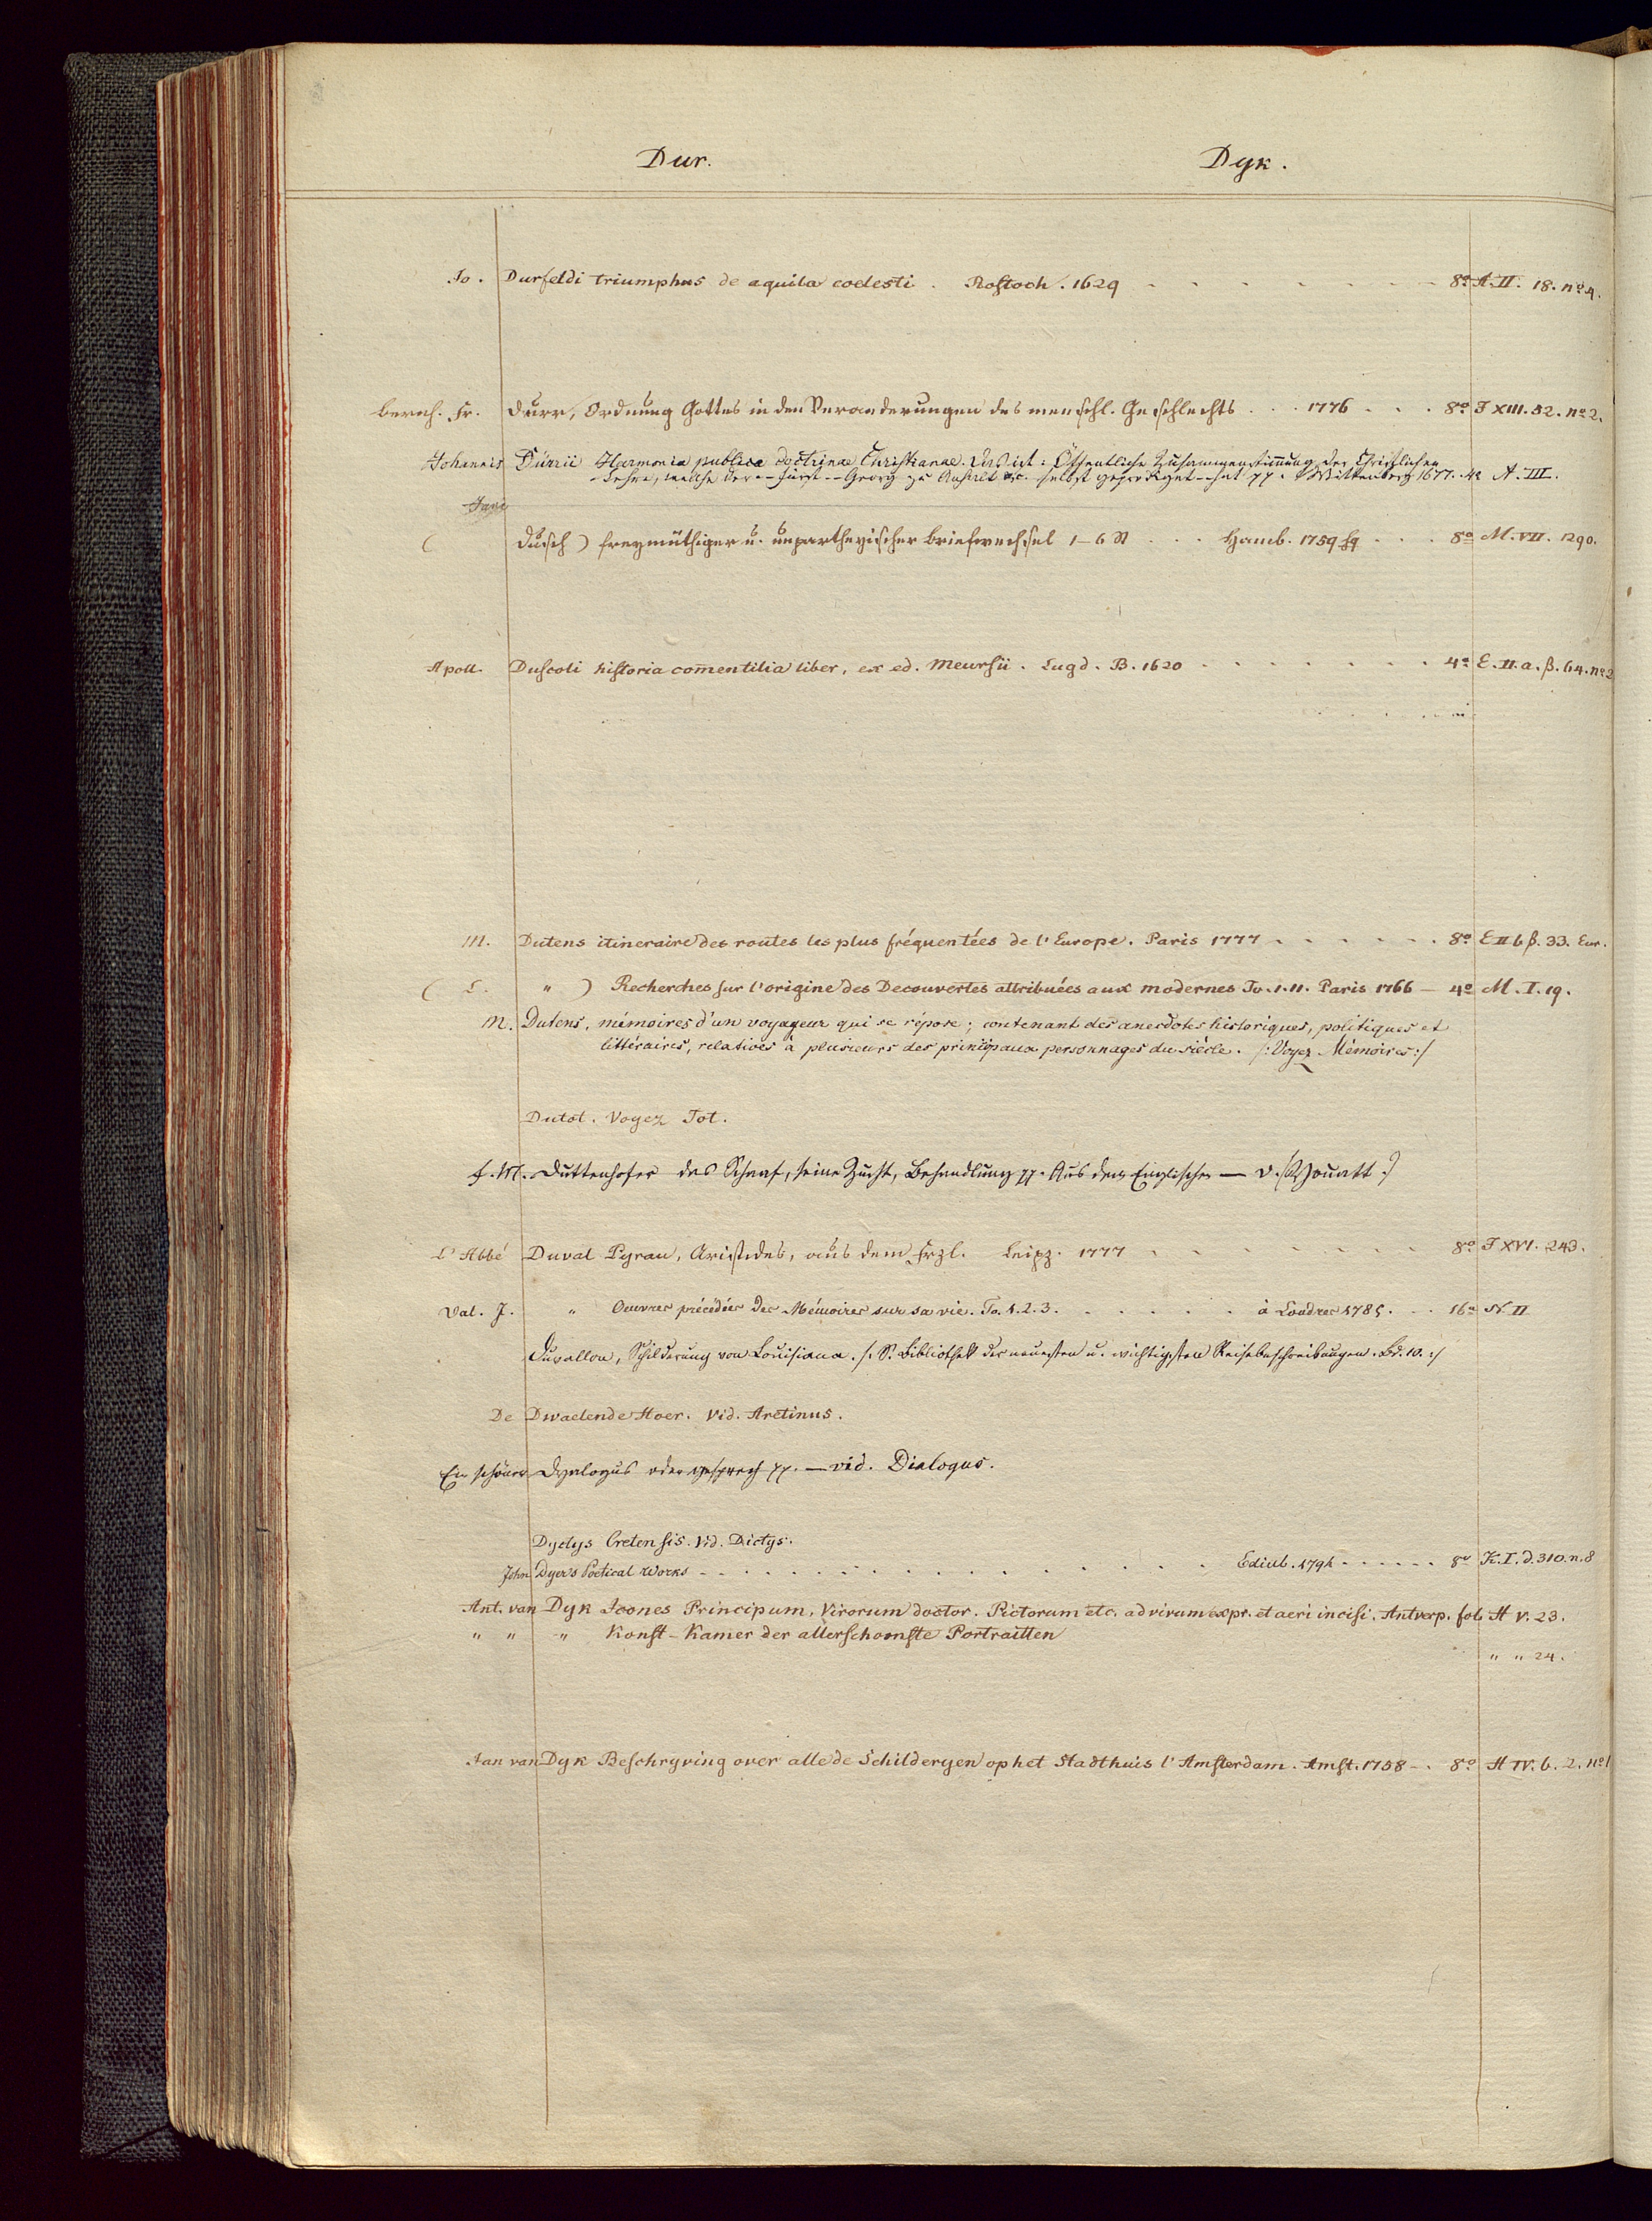 Dur. Dyk.
Jo. Durfeldi triumphus de aquila coelesti. Rostoch. 1629 8º A. II. 18. nº 4.
bernh. Fr. Durr, Ordnung Gottes in den Veranderungen des menschl. Geschlechts 1776 8º J XIII. 52. nº 2.
Johannis Dürrii Harmonia publica doctrinae Christianae. Das ist: Öffentliche Zusammenstimmung der Christlichen
Lehre, welche der -- Fürst -- Georg zu Anhalt &c. selbst geprediget -- hat pp. Wittenberg 1677. 4º A. III.
( Dusch) freymüthiger u. unpartheyischer briefwechsel 1-6 St Hamb. 1759 sq 8º M. VII. 1290.
Apoll. Duscoli historia comentitia liber, ex ed. Meursii. Lugd. B. 1620 4º E. II. a. β. 64. nº 2
M. Dutens itineraire des routes les plus fréquentées de l'Europe. Paris 1777 8º E II b β. 33. Eur.
( L. " ) Recherches sur l'origine des Decouvertes attribuées aux modernes To. I. II. Paris 1766 — 4º M. I. 19.
M. Dutens, mémoires d'un voyageur qui se répose; contenant des anecdotes historiques, politiques et
littéraires, relatives à plusieurs des principaux personnages du siècle. /: Voyez Mémoires :/
Dutot. Voyez Tot.
F. M. Duttenhofer das Schaaf, seine Zucht, Behandlung pp. Aus dem Englischen — v. (Youatt.)
L'Abbé Duval Pyrau, Aristides, aus dem Frzl. Leipz. 1777 8º J XVI. 243.
Val. J. " Oeuvres précédées des Mémoires sur sa vie. To. 1. 2. 3. à Londres 1785. 16º N II
Duvallon, Schilderung von Louisiana. /: S. Bibliothek der neuesten u. wichtigsten Reisebeschreibungen. Bd. 10. :/
De Dwaelende Hoer. Vid. Aretinus.
Ein schöner Dyalogus oder gesprech pp. — vid. Dialogus.
Dyctys Cretensis. Vid. Dictys.
John Dyer's Poetical Works Edinb. 1794 8º K. I. d. 310. n. 8
Ant. van Dyk Icones Principum, Virorum doctor. Pictorum etc. ad vivum expr. et aeri incisi. Antverp. fol. H V. 23.
" " " Konst-Kamer der allerschoonste Portraitten
" " 24.
Jan van Dyk Beschryving over alle de Schilderyen op het Stadthuis t'Amsterdam. Amst. 1758 8º H IV. b. 2. nº 1